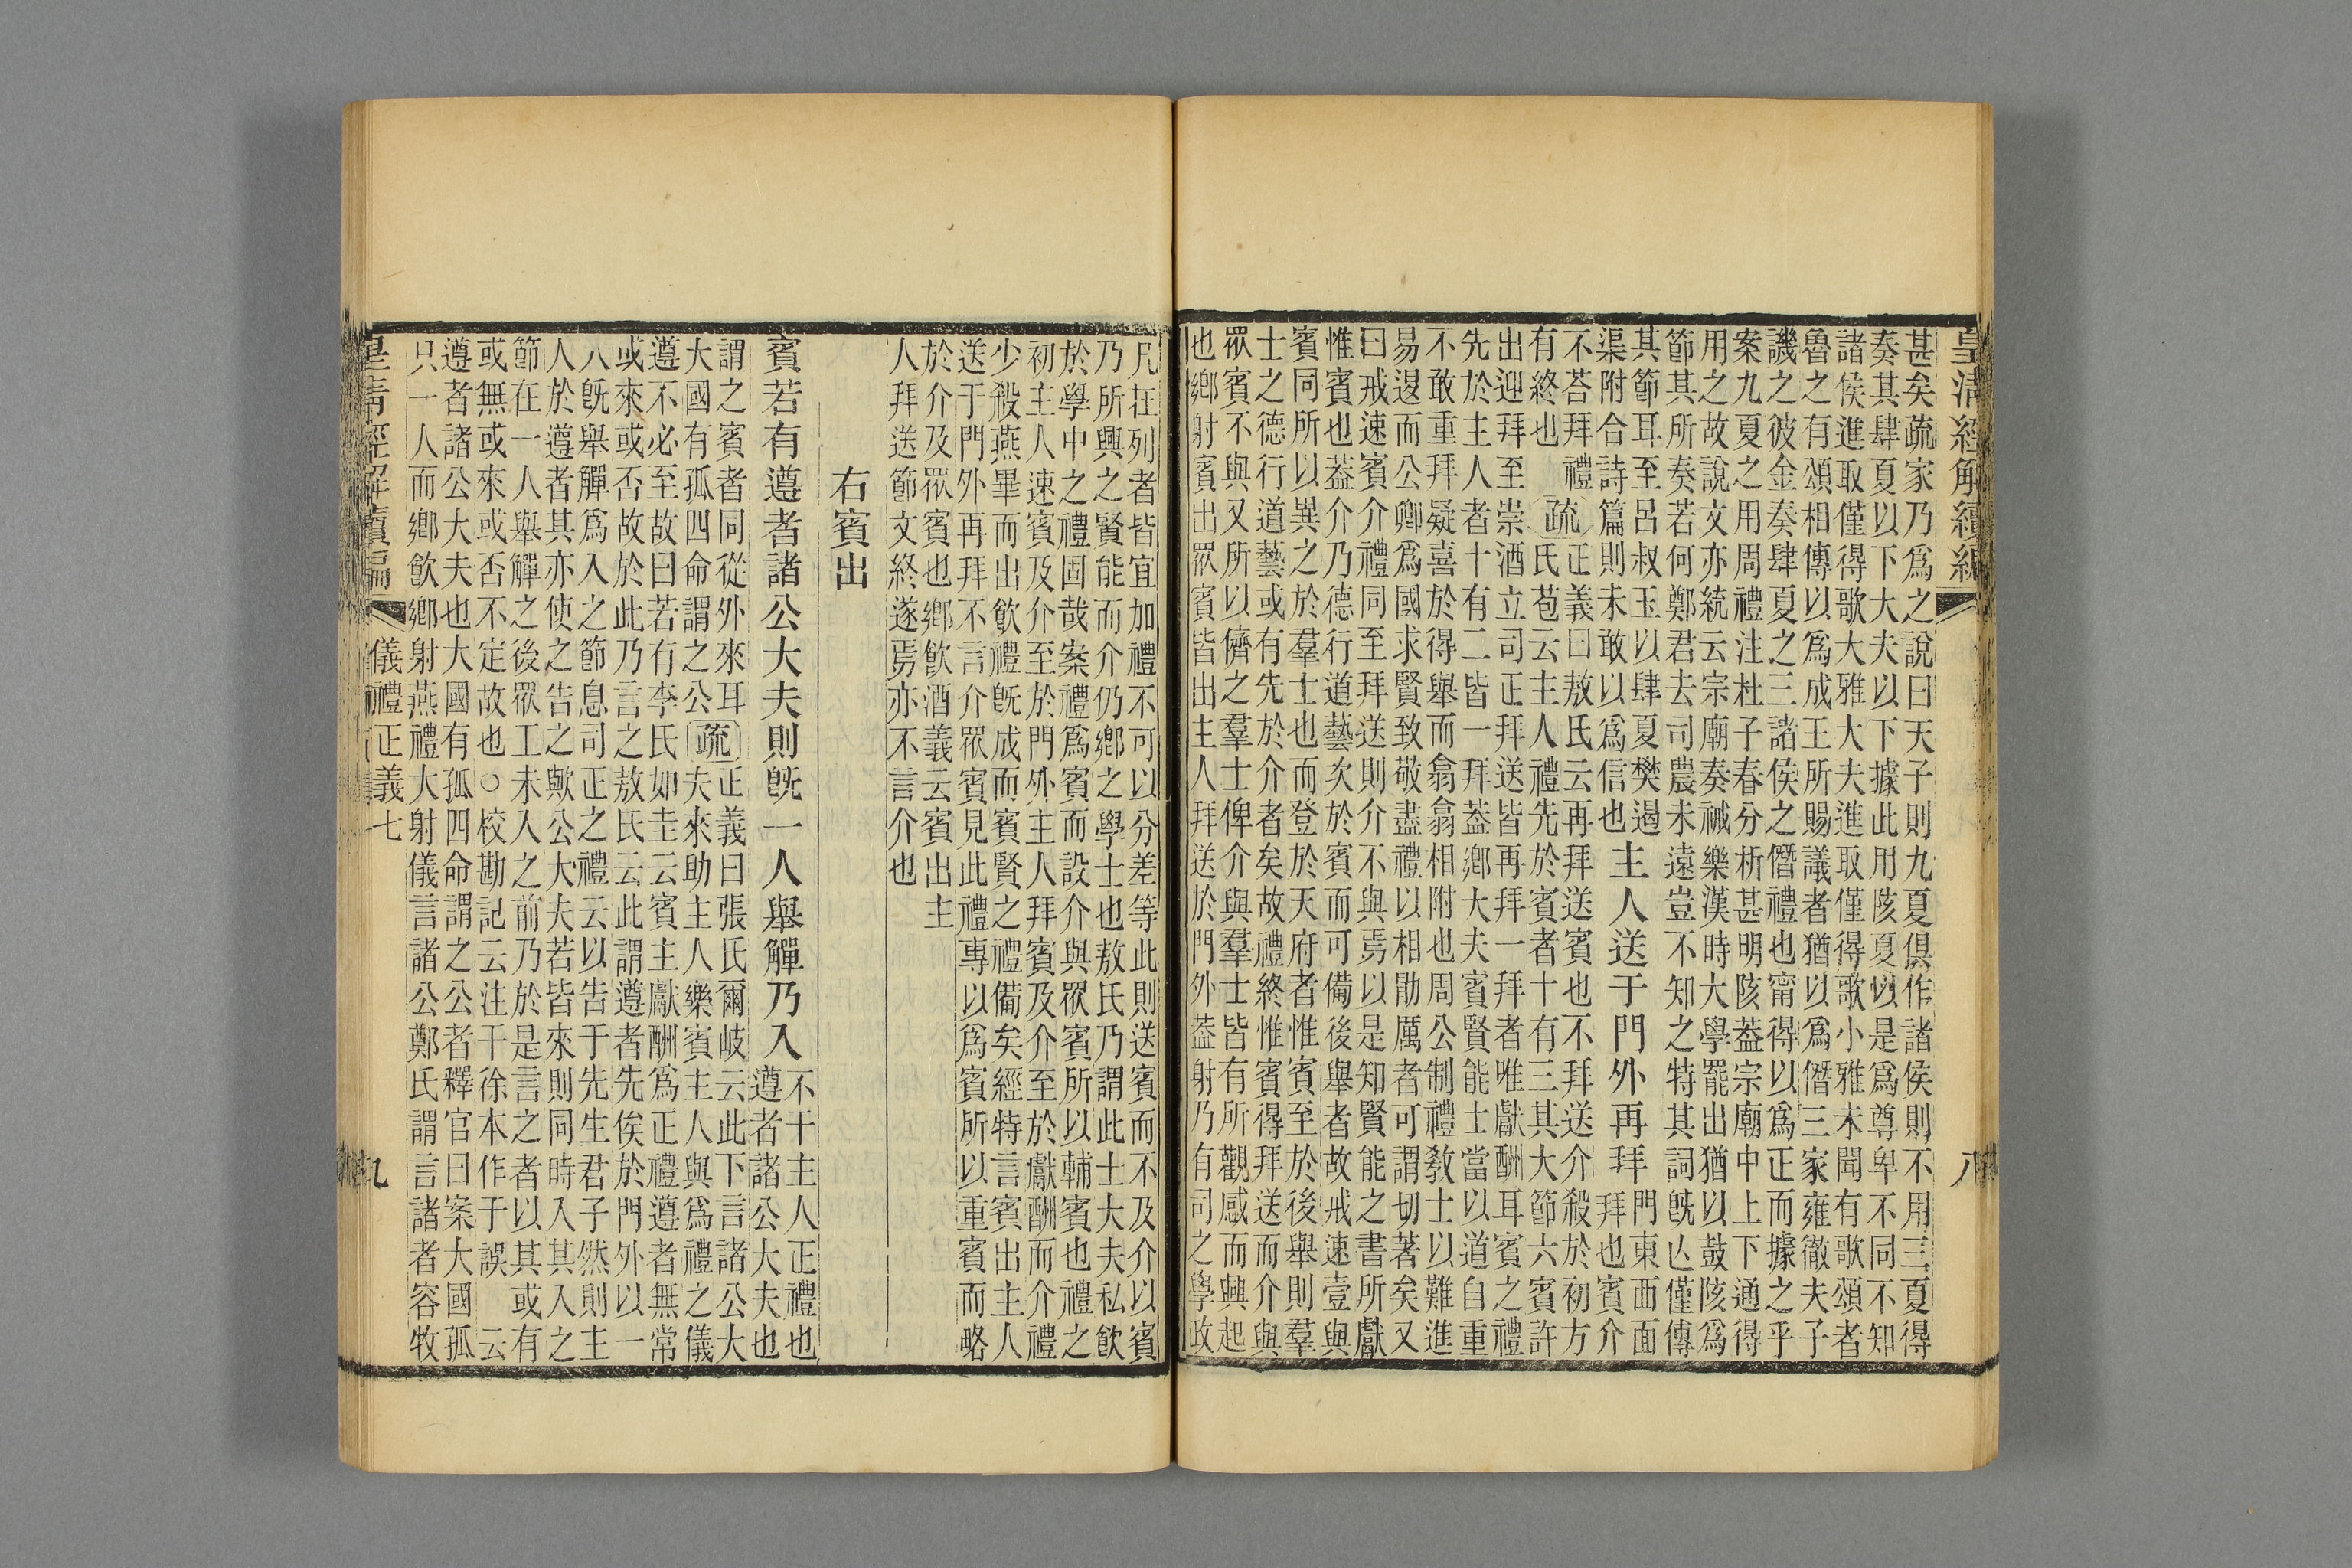 皇清經解續編
八
甚矣疏家乃爲之說曰天子則九夏俱作諸侯則不用三夏得
奏其肆夏以下大夫以下據此用陔夏以是爲尊卑不同不知
諸侯進取僅得歌大雅大夫進取僅得歌小雅未聞有歌頌者
魯之有頌相傳以爲成王所賜議者猶以爲僭三家雍徹夫子
譏之彼金奏肆夏之三諸侯之僭禮也甯得以爲正而據之乎
案九夏之用周禮注杜子春分析甚明陔葢宗廟中上下通得
用之故說文亦統云宗廟奏祴樂漢時大學罷出猶以鼓陔爲
節其所奏若何鄭君去司農未遠豈不知之特其詞旣亾僅傳
其節耳至呂叔玉以肆夏樊遏
渠附合詩篇則未敢以爲信也
主人送于門外再拜
門東西面
拜也賓介
不荅拜禮
有終也
疏
正義曰敖氏云再拜送賓也不拜送介殺於初方
氏苞云主人禮先於賓者十有三其大節六賓許
出迎拜至崇酒立司正拜送皆再拜一拜者唯獻酬耳賓之禮
先於主人者十有二皆一拜葢鄉大夫賓賢能士當以道自重
不敢重拜疑喜於得舉而翕翕相附也周公制禮教士以難進
易退而公卿爲國求賢致敬盡禮以相勛厲者可謂切著矣又
曰戒速賓介禮同至拜送則介不與焉以是知賢能之書所獻
惟賓也葢介乃德行道藝次於賓而可備後舉者故戒速壹與
賓同所以異之於羣士也而登於天府者惟賓至於後舉則羣
士之德行道藝或有先於介者矣故禮終惟賓得拜送而介與
眾賓不與又所以儕之羣士俾介與羣士皆有所觀感而興起
也鄉射賓出眾賓皆出主人拜送於門外葢射乃有司之學政
凡在列者皆宜加禮不可以分差等此則送賓而不及介以賓
乃所興之賢能而介仍鄉之學士也敖氏乃謂此士大夫私飮
於學中之禮固哉案禮爲賓而設介與眾賓所以輔賓也禮之
初主人速賓及介至於門外主人拜賓及介至於獻酬而介禮
少殺燕畢而出飮禮旣成而賓賢之禮備矣經特言賓出主人
送于門外再拜不言介眾賓見此禮專以爲賓所以重賓而略
於介及眾賓也鄉飮酒義云賓出主
人拜送節文終遂焉亦不言介也
右賓出
賓若有遵者諸公大夫則旣一人舉觶乃入
不干主人正禮也
遵者諸公大夫也
謂之賓者同從外來耳
大國有孤四命謂之公
疏
正義曰張氏爾岐云此下言諸公大
夫來助主人樂賓主人與爲禮之儀
遵不必至故曰若有李氏如圭云賓主獻酬爲正禮遵者無常
或來或否故於此乃言之敖氏云此謂遵者先俟於門外以一
人旣舉觶爲入之節息司正之禮云以告于先生君子然則主
人於遵者其亦使之告之歟公大夫若皆來則同時入其入之
節在一人舉觶之後眾工未入之前乃於是言之者以其或有
或無或來或否不定故也○校勘記云注干徐本作于誤 云
遵者諸公大夫也大國有孤四命謂之公者釋官曰案大國孤
只一人而鄉飮鄉射燕禮大射儀言諸公鄭氏謂言諸者容牧
皇清經解續編
儀禮正義七
九